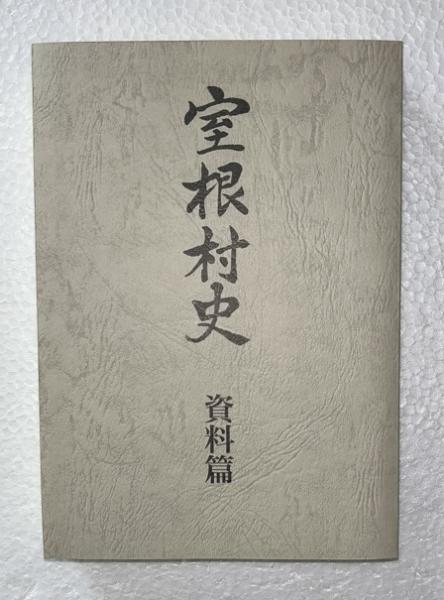 室根村史
資料篇